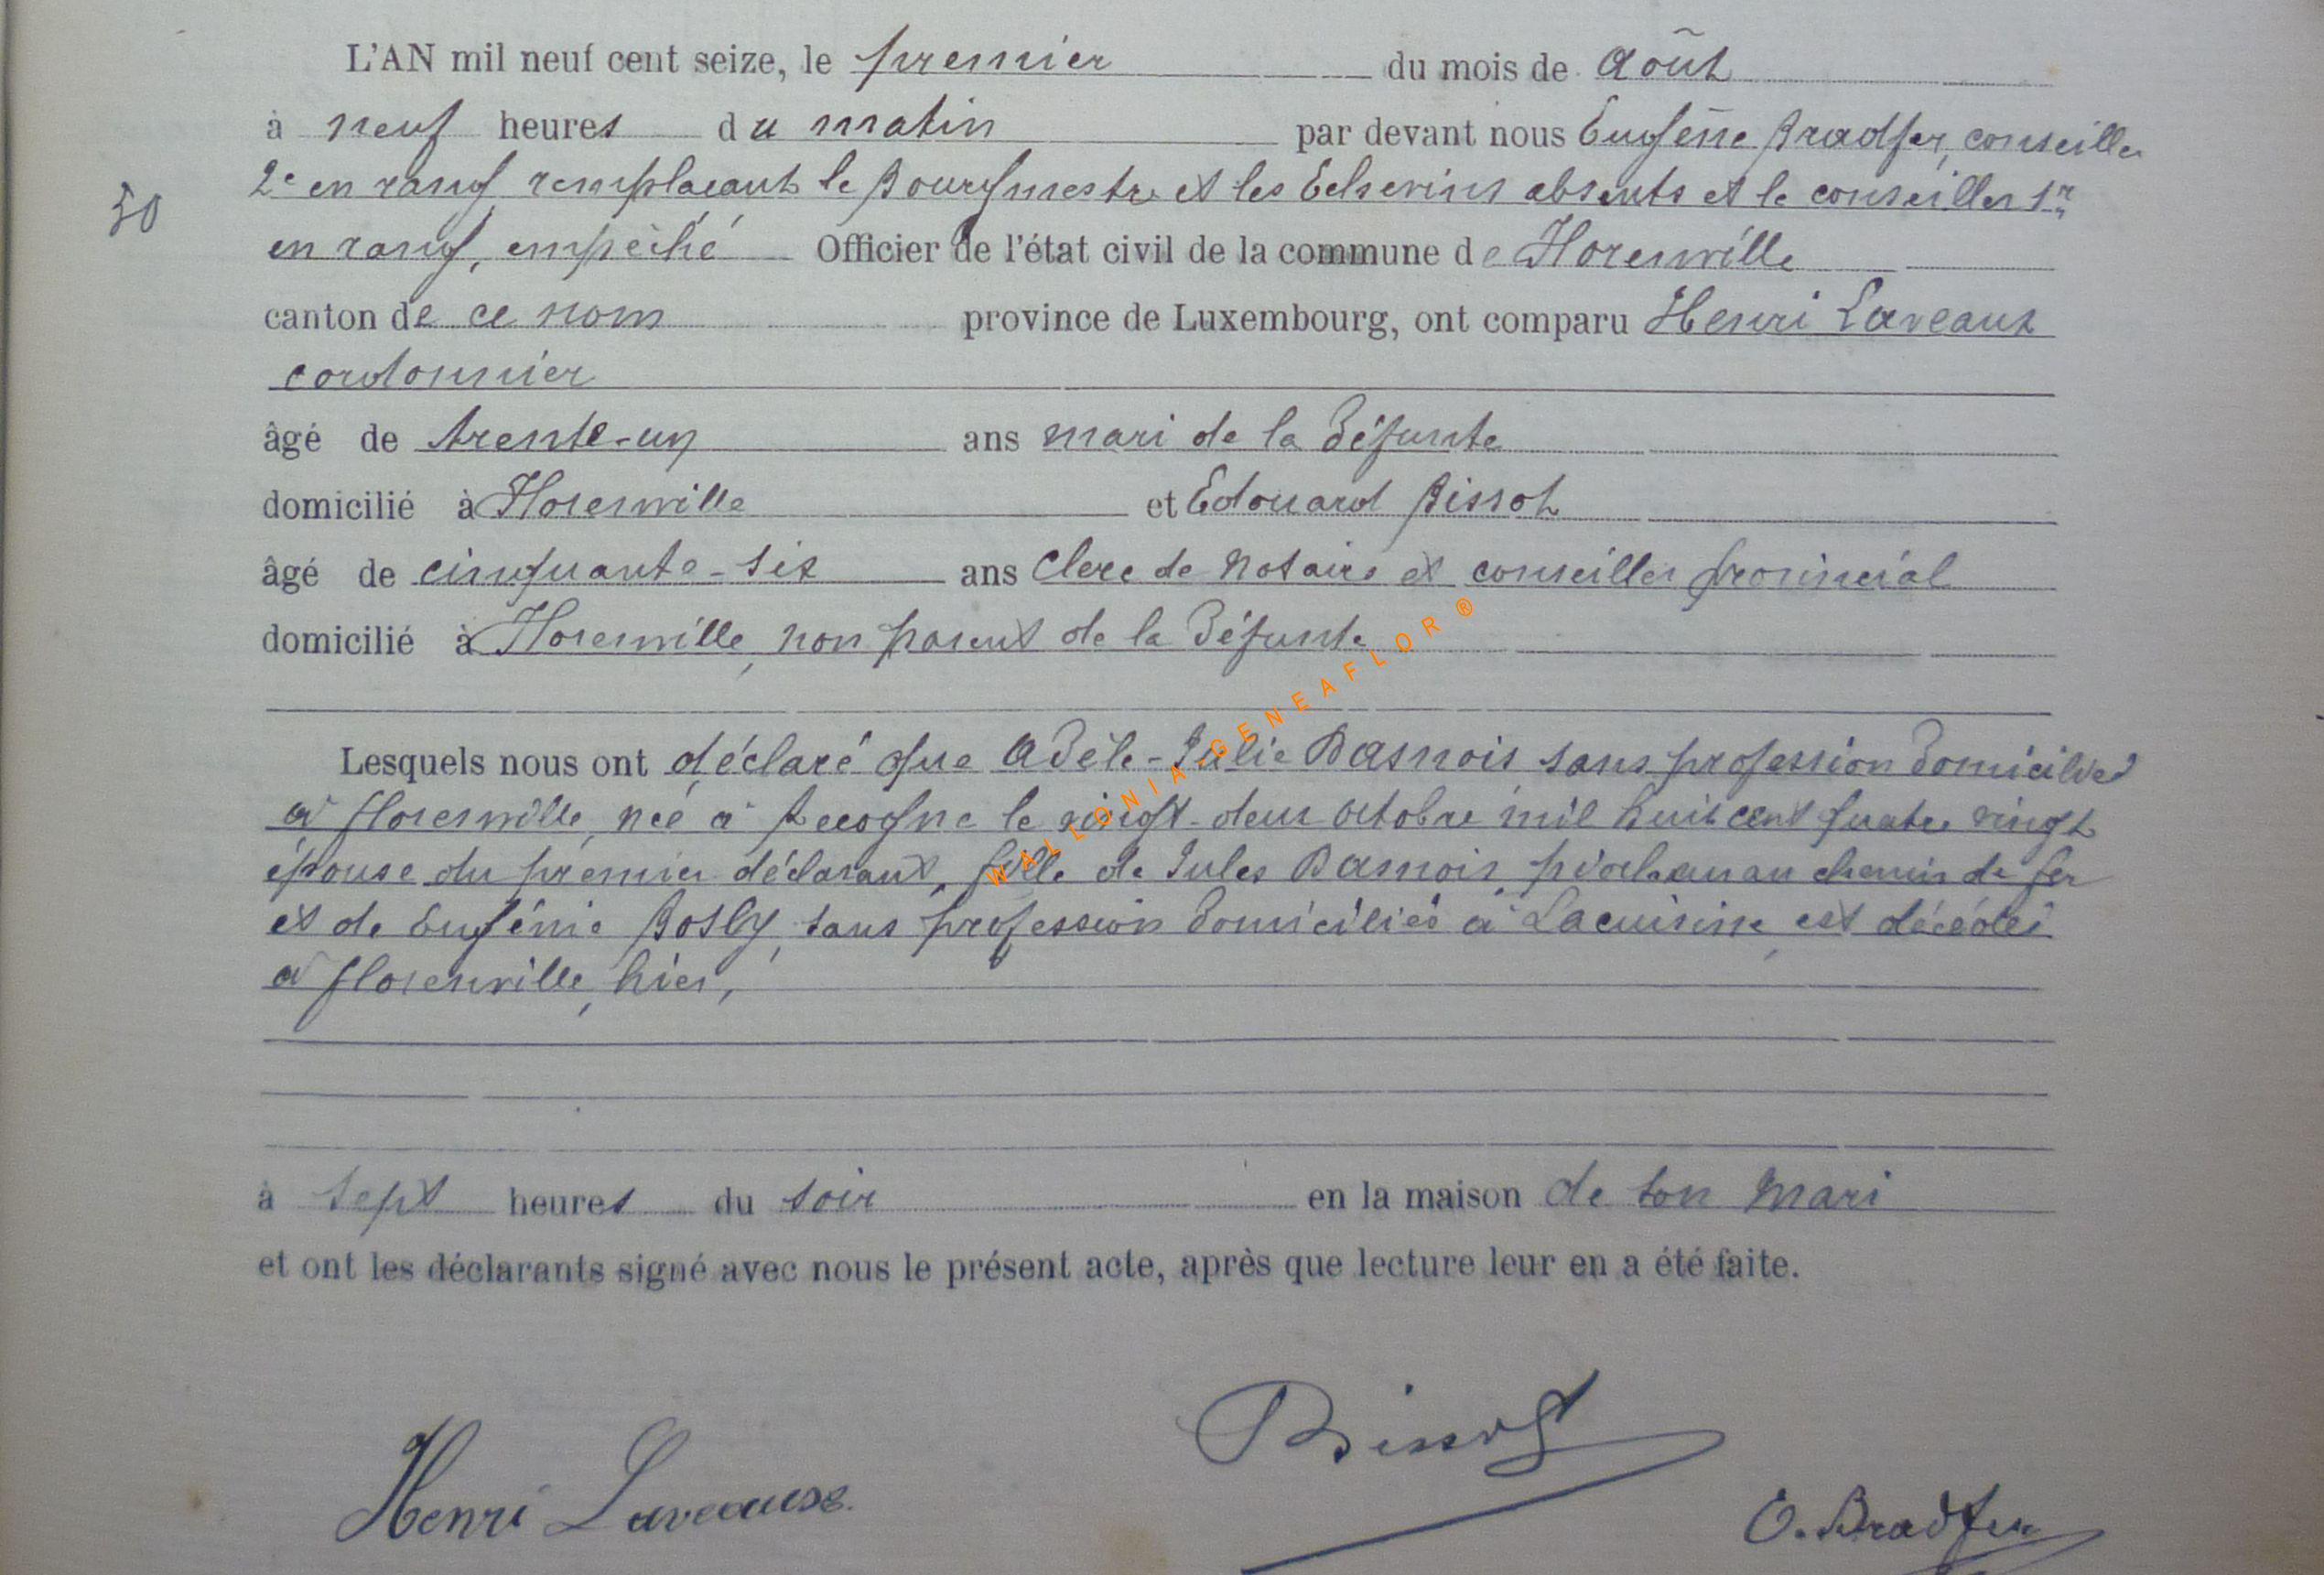 L'AN mil neuf cent seize, le premier du mois de Août
à neuf heures du matin par devant nous Eugène Bradfer, conseiller
50
2e en rang remplaçant le Bourgmestre et les Echevins absents et le conseiller 1r
en rang, empêché Officier de l'état civil de la commune de Florenville
canton de ce nom province de Luxembourg, ont comparu Henri Laveaux
cordonnier
âgé de trente-un ans mari de la défunte
domicilié à Florenville et Edouard Bissot
âgé de cinquante-six ans clerc de notaire et conseiller provincial
domicilié à Florenville, non parent de la défunte
Lesquels nous ont déclaré que Adèle-Julie Dasnois, sans profession domiciliée
à Florenville, née à Recogne le vingt-deux octobre mil huit cent quatre vingt
épouse du premier déclarant, fille de Jules Dasnois, piocheur au chemin de fer
et de Eugénie Bosly, sans profession domiciliés à Lacuisine, est décédée
à Florenville, hier,
à sept heures du soir en la maison de son mari
et ont les déclarants signé avec nous le présent acte, après que lecture leur en a été faite.
Henri Laveaux
Bissot
E. Bradfer
WALLONIA GENEAFLOR ®